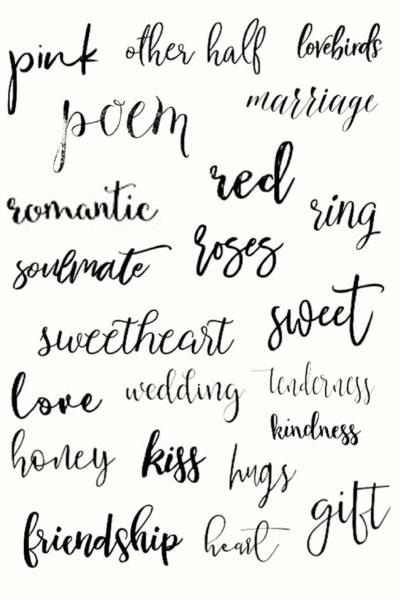 pink other half lovebirds
poem marriage
red
romantic ring
roses
soulmate
sweetheart sweet
love wedding tenderness
kindness
honey kiss hugs
gift
friendship heart